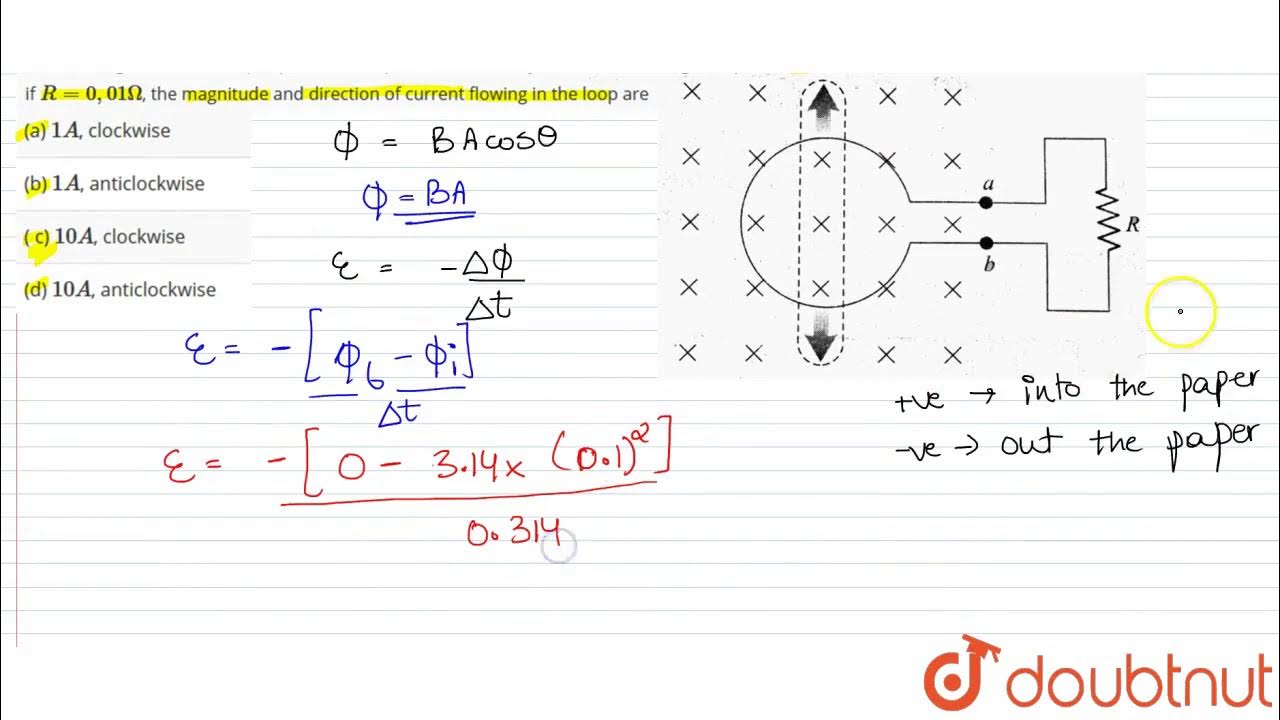 if R = 0, 01Ω, the magnitude and direction of current flowing in the loop are
(a) 1A, clockwise
(b) 1A, anticlockwise
( c) 10A, clockwise
(d) 10A, anticlockwise
ϕ = BAcosθ
ϕ = BA
ε = -Δϕ
Δt
ε = - [ϕ6 - ϕi]
Δt
ε = - [0 - 3.14x (0.1)²]
0.314
a
b
R
+ve → into the paper
-ve → out the paper
doubtnut